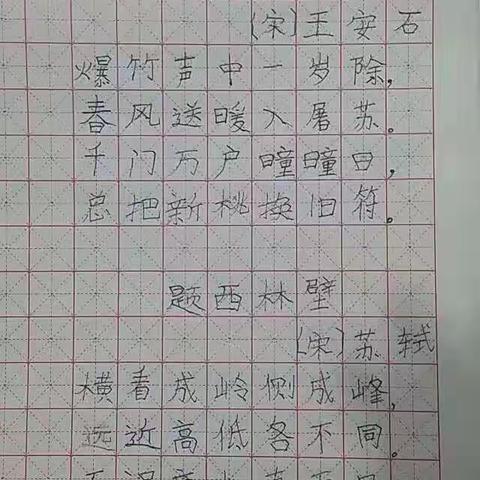 (宋)王安石
爆竹声中一岁除,
春风送暖入屠苏。
千门万户曈曈日,
总把新桃换旧符。
题西林壁
(宋)苏轼
横看成岭侧成峰,
远近高低各不同。